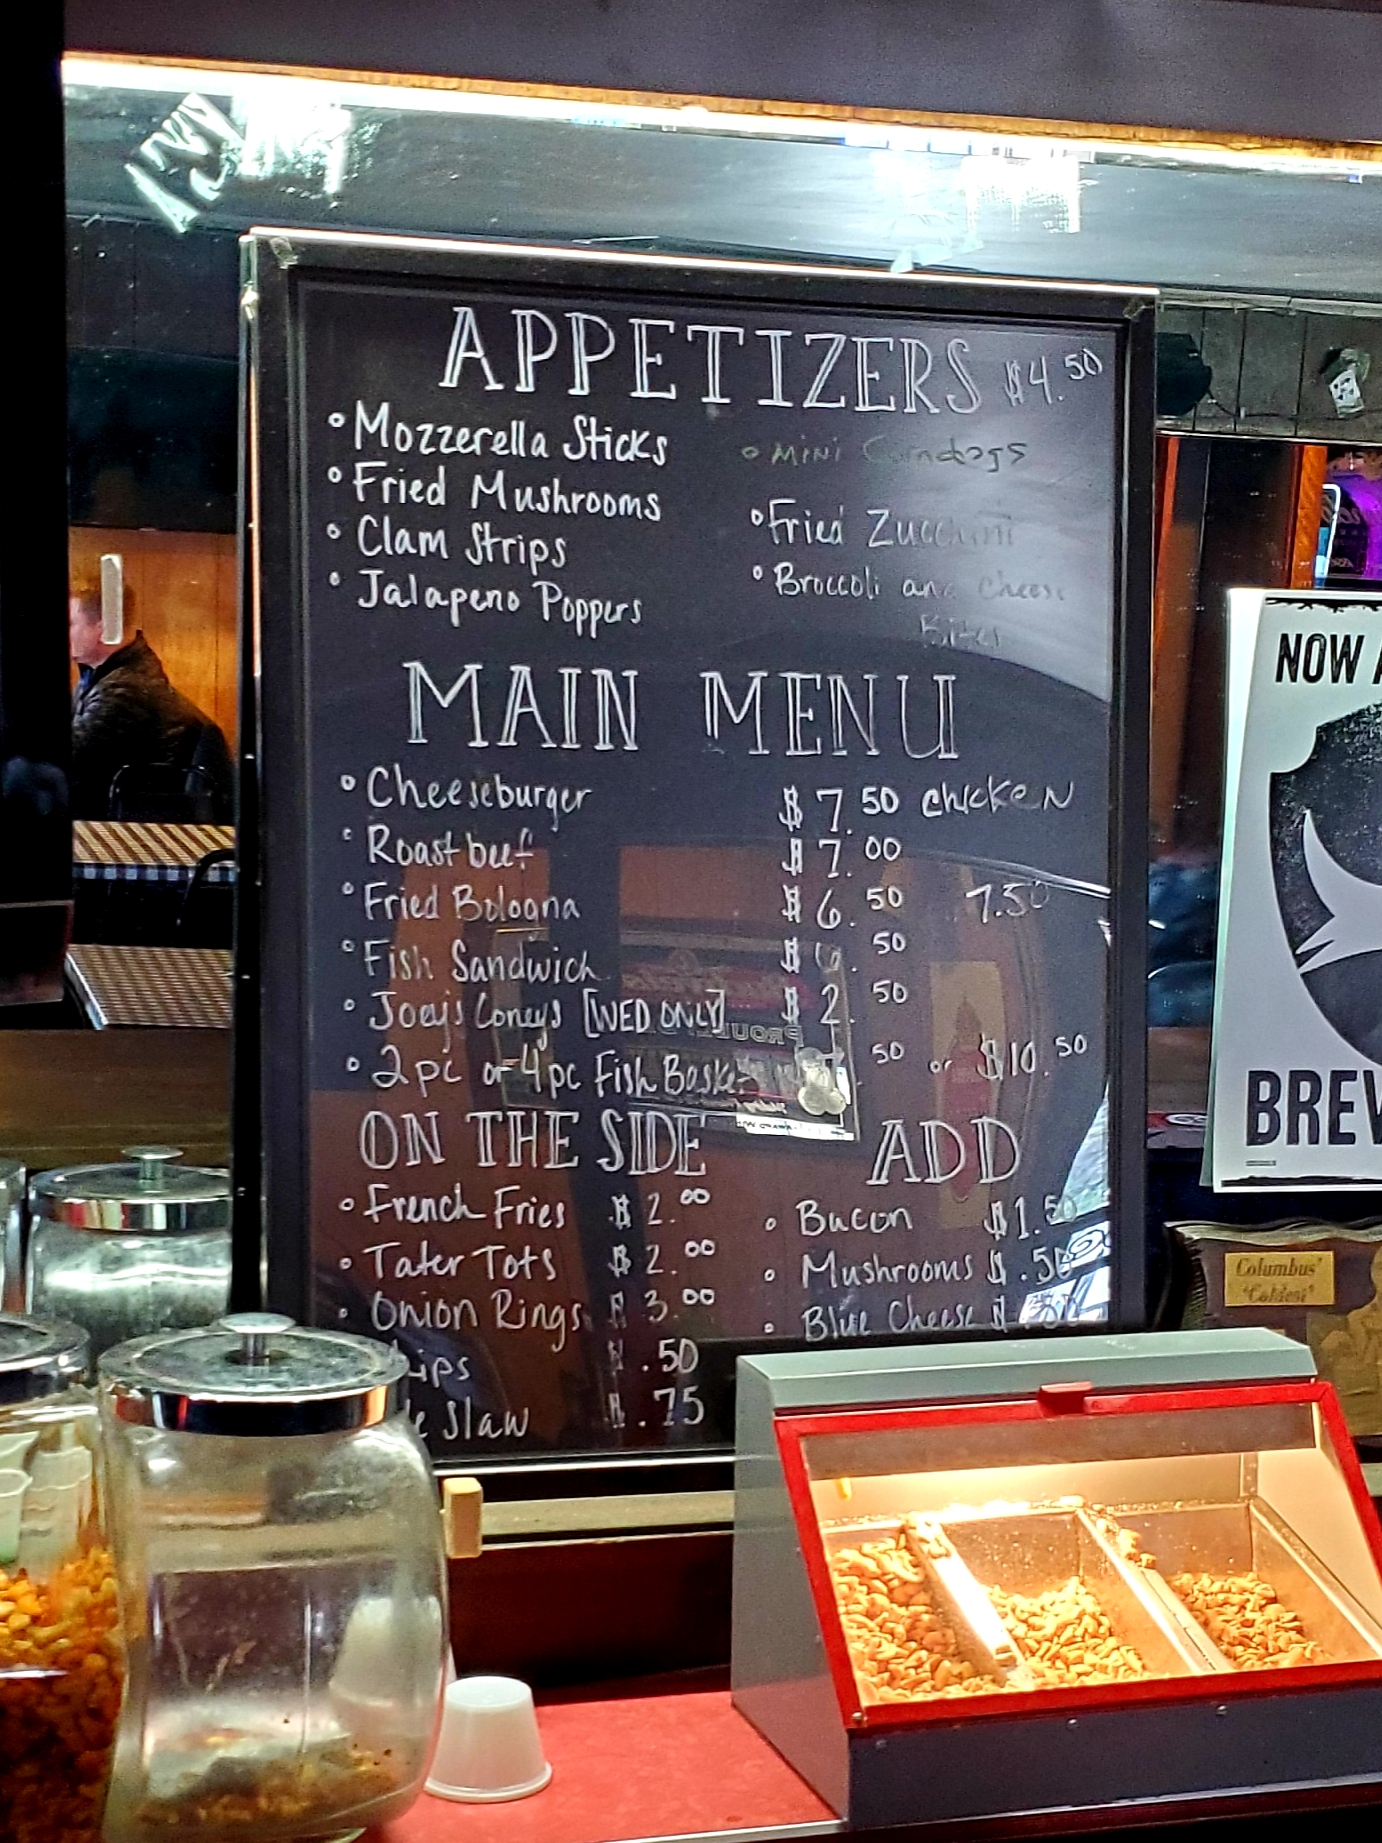 APPETIZERS $4.50
• Mozzerella Sticks
• Mini Corndogs
• Fried Mushrooms
• Fried Zucchini
• Clam Strips
• Broccoli and Cheese
Bites
• Jalapeno Poppers
MAIN MENU
• Cheeseburger $7.50 chicken
• Roast beef $7.00
• Fried Bologna $6.50 7.50
• Fish Sandwich $6.50
• Joey's Coneys [WED ONLY] $2.50
• 2pc or 4pc Fish Basket .50 or $10.50
ON THE SIDE
• French Fries $2.00
• Tater Tots $2.00
• Onion Rings $3.00
$.50
Slaw $.75
ADD
• Bacon $1.50
• Mushrooms $.50
• Blue Cheese $
NOW
BREW
Columbus'
"Coldest"